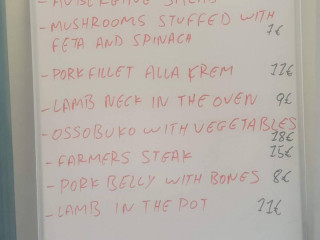 - MUSHROOMS STUFFED WITH
FETA AND SPINACH 7€
- PORK FILLET ALLA KREM 11€
- LAMB NECK IN THE OVEN 9€
- OSSOBUKO WITH VEGETABLES
18€
- FARMERS STEAK 15€
- PORK BELLY WITH BONES 8€
- LAMB IN THE POT 11€